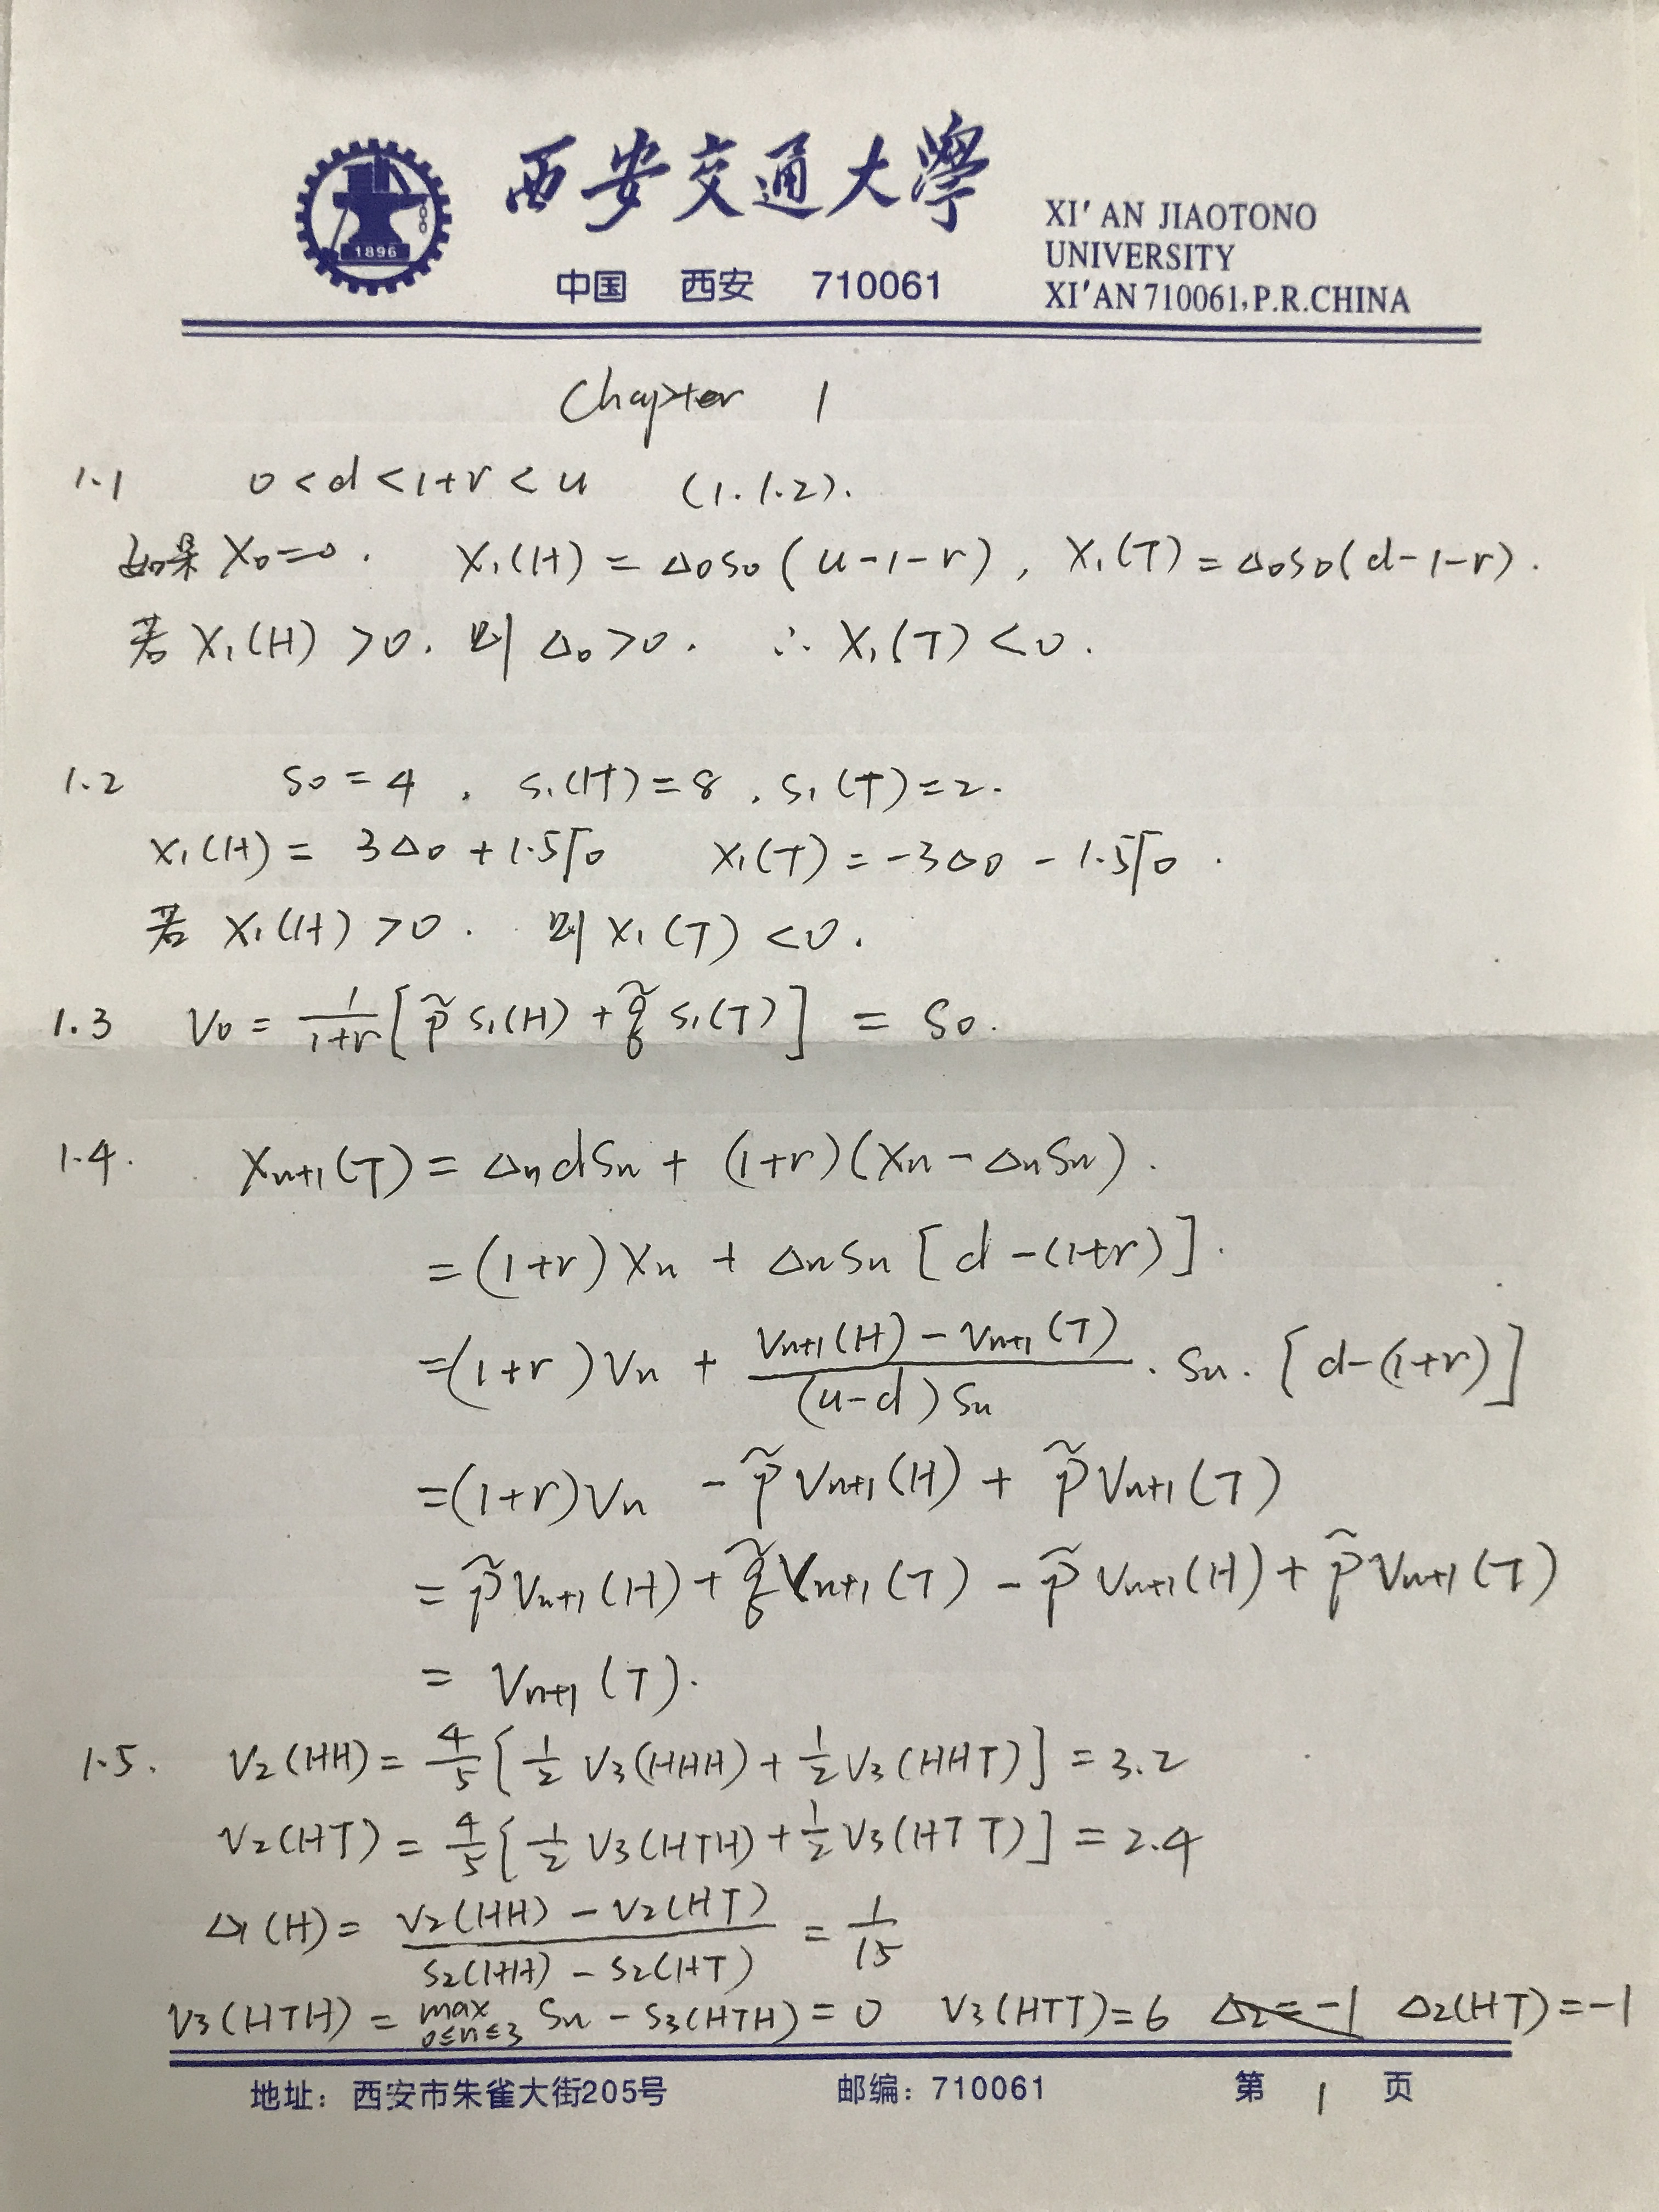 西安交通大學
中国 西安 710061
XI'AN JIAOTONO
UNIVERSITY
XI'AN 710061, P.R.CHINA
1896
Chapter 1
1.1 0<d<1+r<u (1.1.2).
如果 X₀=0. X₁(H) = Δ₀S₀(u-1-r), X₁(T) = Δ₀S₀(d-1-r).
若 X₁(H) >0. 则 Δ₀>0. ∴ X₁(T) <0.
1.2 S₀=4, S₁(H)=8, S₁(T)=2.
X₁(H) = 3Δ₀+1.5Γ₀ X₁(T) = -3Δ₀-1.5Γ₀.
若 X₁(H) >0. 则 X₁(T) <0.
1.3 V₀ = 1/(1+r) [p̃ S₁(H) + q̃ S₁(T)] = S₀.
1.4. Xₙ₊₁(T) = ΔₙdSₙ + (1+r)(Xₙ-ΔₙSₙ).
=(1+r)Xₙ + ΔₙSₙ[d-(1+r)].
=(1+r)Vₙ + (Vₙ₊₁(H)-Vₙ₊₁(T))/((u-d)Sₙ) · Sₙ · [d-(1+r)]
=(1+r)Vₙ - p̃Vₙ₊₁(H) + p̃Vₙ₊₁(T)
= p̃Vₙ₊₁(H) + q̃Vₙ₊₁(T) - p̃Vₙ₊₁(H) + p̃Vₙ₊₁(T)
= Vₙ₊₁(T).
1.5. V₂(HH) = 4/5 [1/2 V₃(HHH) + 1/2 V₃(HHT)] = 3.2
V₂(HT) = 4/5 [1/2 V₃(HTH) + 1/2 V₃(HTT)] = 2.4
Δ₁(H) = (V₂(HH)-V₂(HT))/(S₂(HH)-S₂(HT)) = 1/15
V₃(HTH) = max 0≤n≤3 Sₙ - S₃(HTH) = 0 V₃(HTT)=6 Δ₂=-1 Δ₂(HT)=-1
地址：西安市朱雀大街205号 邮编：710061 第 1 页